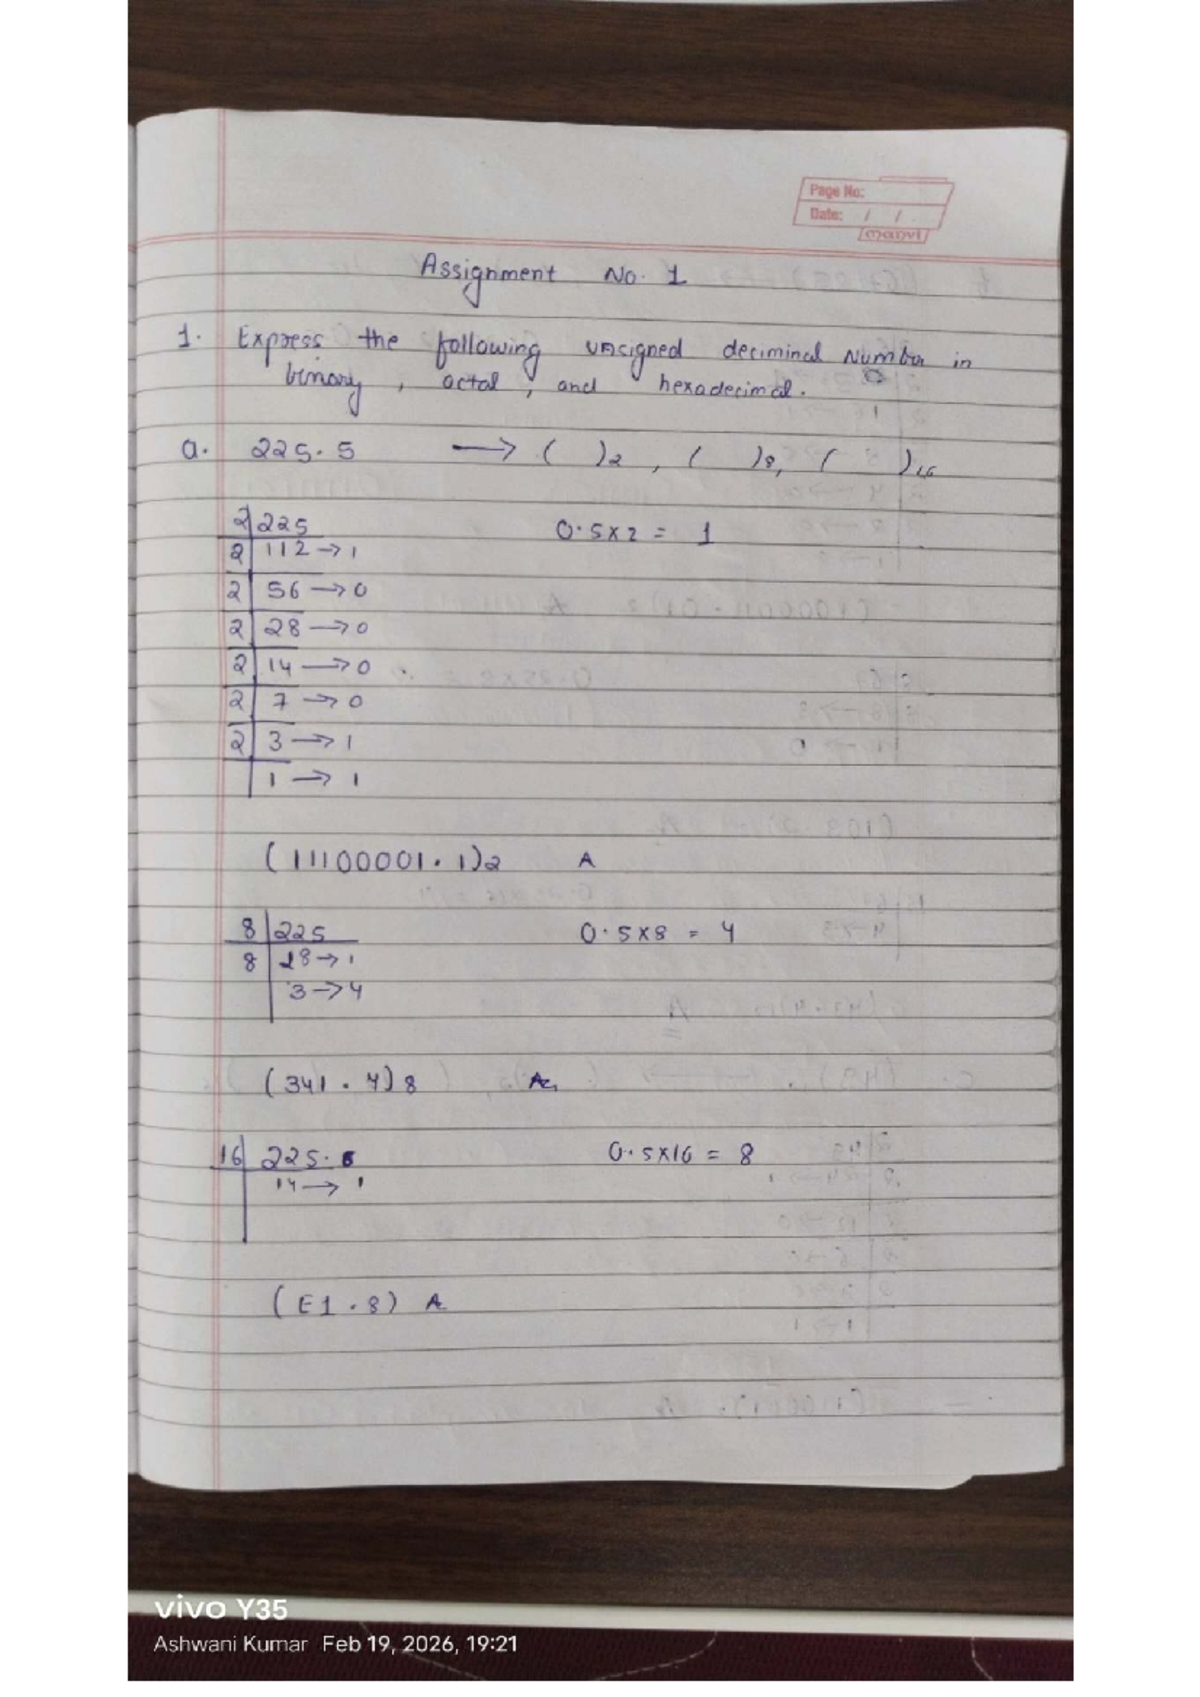 Page No:
Date: / /
manvi
Assignment No. 1
1. Express the following unsigned deciminal Number in
binary, octal, and hexadecimal.
a. 225.5 → ( )2, ( )8, ( )16
2 225 0.5x2 = 1
2 112 → 1
2 56 → 0
2 28 → 0
2 14 → 0
2 7 → 0
2 3 → 1
1 → 1
(11100001.1)2 A
8 225 0.5x8 = 4
8 28 → 1
3 → 4
(341.4)8 A
16 225. 0.5x16 = 8
14 → 1
(E1.8) A
vivo Y35
Ashwani Kumar Feb 19, 2026, 19:21